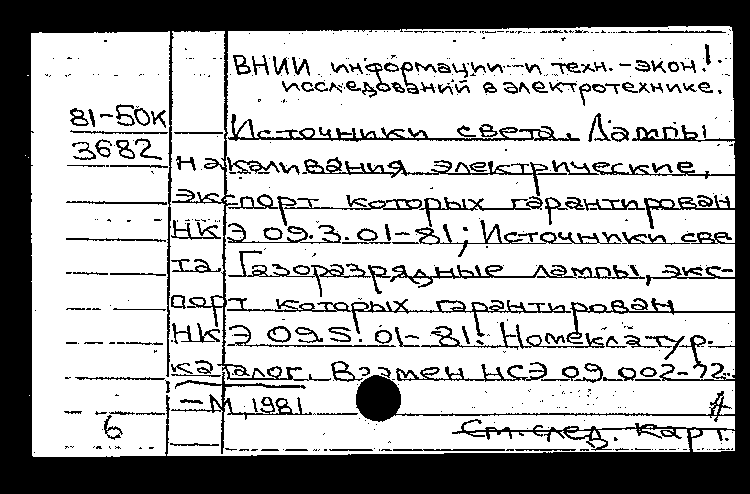 ВНИИ информации и техн.-экон.
исследований в электротехнике.
81-50К
Источники света. Лампы
3682
накаливания электрические,
экспорт которых гарантирован
НКЭ 09.3.01-81; Источники све-
та. Газоразрядные лампы, экс-
порт которых гарантирован
НКЭ 09.5.01-81: Номеклатур.
каталог. Взамен НСЭ 09.002-72.
—М, 1981
6
См. след. карт.